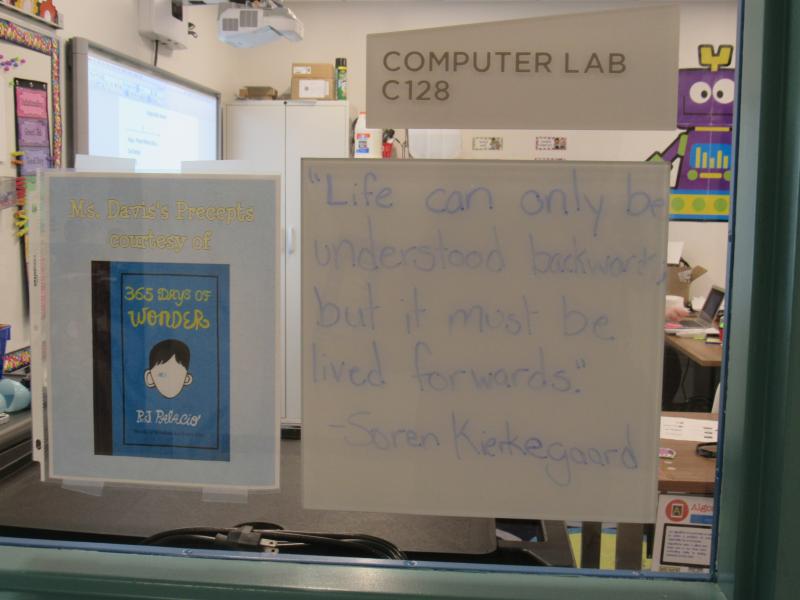 COMPUTER LAB
C128
Ms. Davis's Precepts
courtesy of
365 DAYS OF
WONDER
R.J. PALACIO
"Life can only be
understood backwards,
but it must be
lived forwards."
-Soren Kierkegaard
Algor